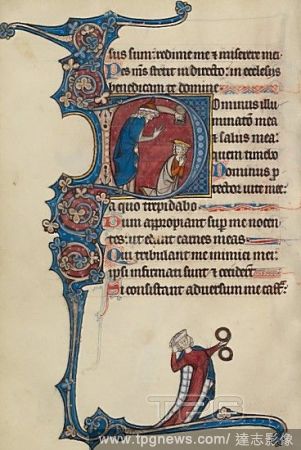 sus sum: redime me et miserere mei
Pes meus stetit in directo: in ecclesiis
benedicam te domine
Dominus illu
minatio mea
et salus mea:
quem timebo
Dominus p
tector vite mee:
a quo trepidabo
Dum appropiant sup me nocen
tes: ut edant carnes meas
Qui tribulant me inimici mei:
ipsi infirmati sunt et ceciderunt
Si consistant adversum me cast
TPG
www.tpgnews.com/達志影像